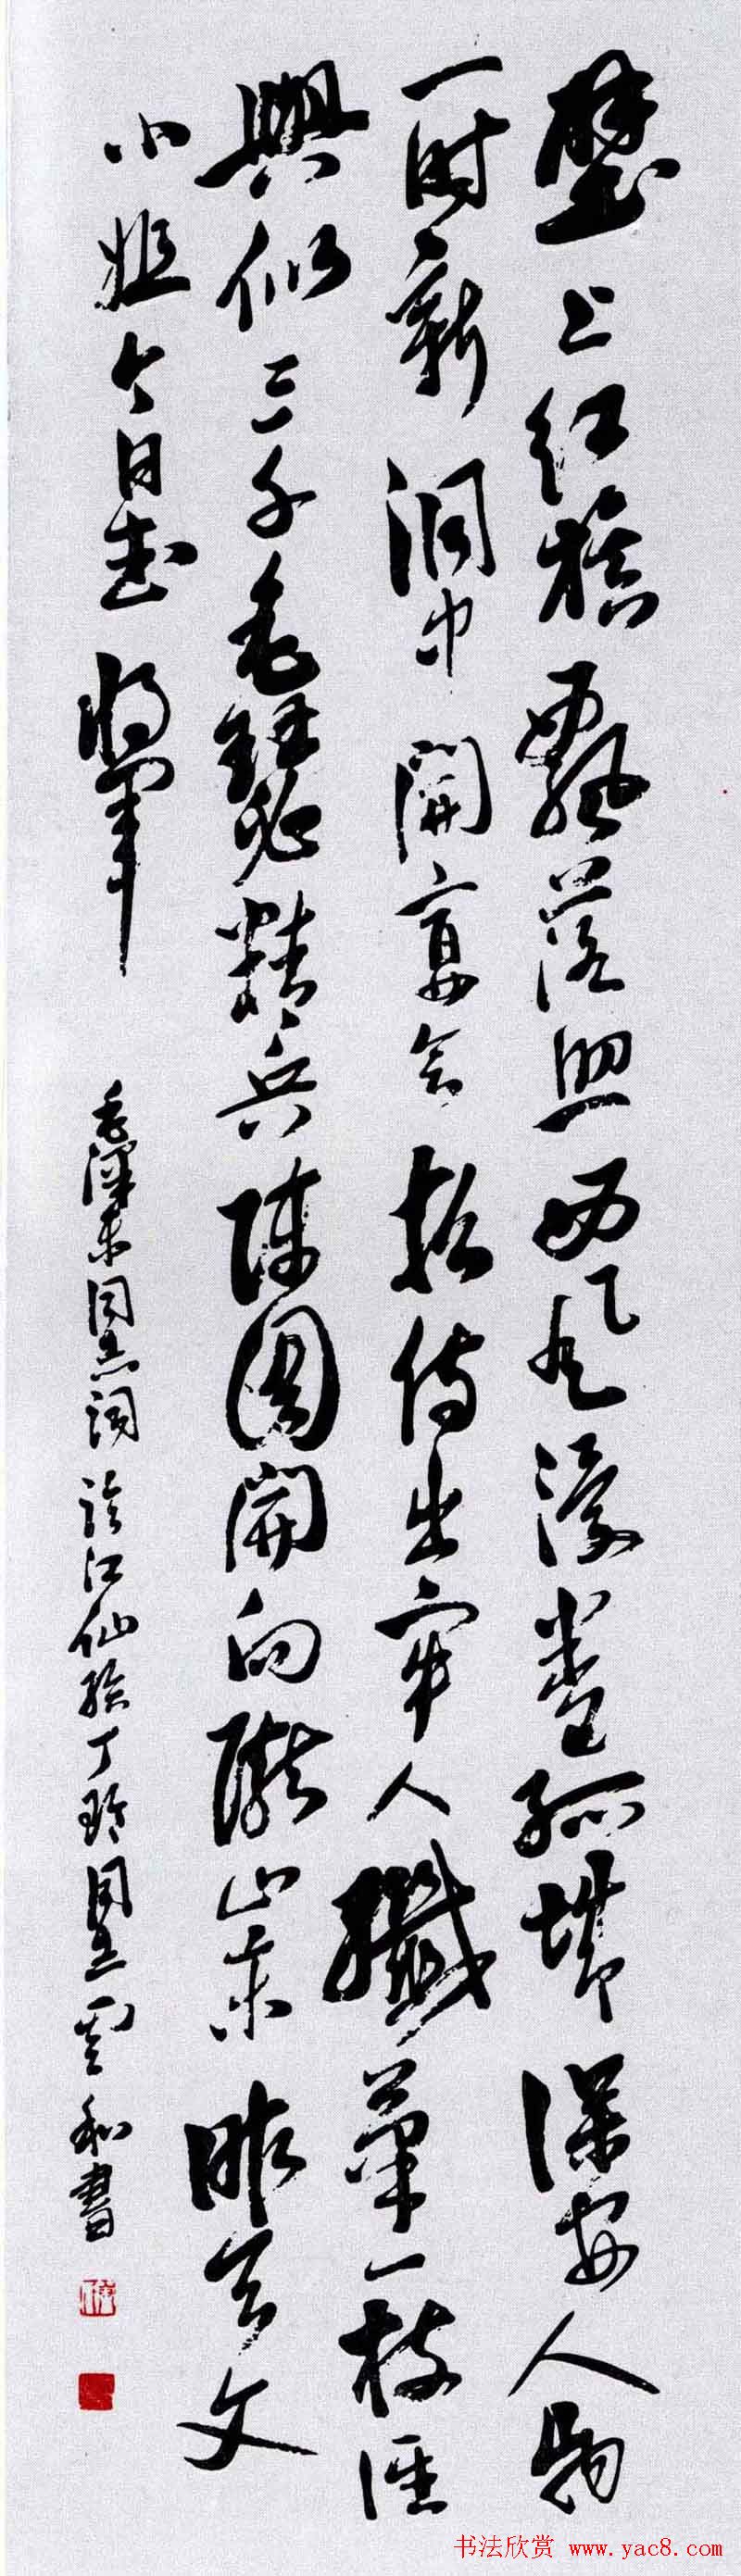 壁上红旗飘落照西风漫卷孤城保安人物
一时新洞中開宴会招待出牢人纖筆一枝谁
與似三千毛瑟精兵陣图開向隴山東昨天文
小姐今日武将軍
毛澤东同志词临江仙给丁玲同志雲和書
书法欣赏 www.yac8.com